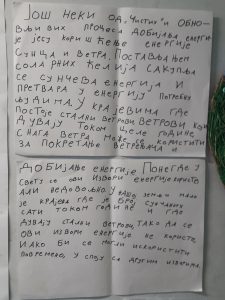 ЈОШ НЕКИ ОД „ЧИСТИХ“ И ОБНО-
ВЉИВИХ ПРОЦЕСА ДОБИЈАЊА ЕНЕРГИ-
ЈЕ ЈЕСУ КОРИШЋЕЊЕ ЕНЕРГИЈЕ
СУНЦА И ВЕТРА. ПОСТАВЉАЊЕМ
СОЛАРНИХ ЋЕЛИЈА САКУПЉА
СЕ СУНЧЕВА ЕНЕРГИЈА И
ПРЕТВАРА У ЕНЕРГИЈУ ПОТРЕБНУ
ЉУДИМА. У КРАЈЕВИМА ГДЕ
ПОСТОЈЕ СТАЛНИ ВЕТРОВИ ВЕТРОВИ КОЈИ
ДУВАЈУ ТОКОМ ЦЕЛЕ ГОДИНЕ,
СНАГА ВЕТРА МОЖЕ СЕ КОРИСТИТИ
ЗА ПОКРЕТАЊЕ ВЕТРЕЊАЧА И
ДОБИЈАЊЕ ЕНЕРГИЈЕ. ПОНЕГДЕ У
СВЕТУ СЕ ОВИ ИЗВОРИ ЕНЕРГИЈЕ КОРИСТЕ
АЛИ НЕДОВОЉНО. У НАШОЈ ЗЕМЉИ ИМА
ЈЕ КРАЈЕВА ГДЕ ЈЕ БРОЈ СУНЧАНИХ
САТИ ТОКОМ ГОДИНЕ И ГДЕ
ДУВАЈУ СТАЛНИ ВЕТРОВИ, ТАКО ДА СЕ
ОВИ ИЗВОРИ ЕНЕРГИЈЕ НЕ КОРИСТЕ,
ИАКО БИ СЕ МОГЛИ ИСКОРИСТИТИ
ПОВРЕМЕНО, У СПОЈУ СА ДРУГИМ ИЗВОРИМА.